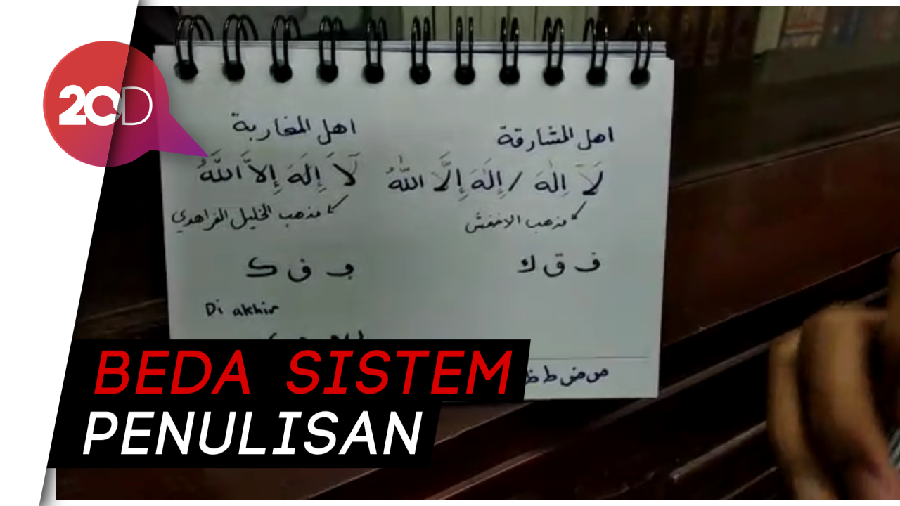 20D
اهل المشارقة
لَآ اِلٰهَ / إِلَٰهَ إِلَّا اللّٰهُ
مذهب الاخفش
ف ق ك
ص ض ط ظ
اهل المغاربة
لَآ إِلَهَ إِلاَّ اللَّهُ
مذهب الخليل الفراهدي
ف ک
Di akhir
BEDA SISTEM
PENULISAN